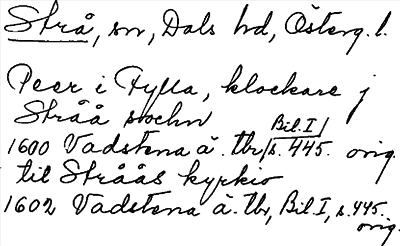 Strå, sn, Dals hd, Österg. l.
Peer i Fylla, klockare j
Stråå sochn
1600 Vadstena ä. tbr Bil. I, s. 445. orig.
til Stråås kyrkio
1602 Vadstena ä. tbr, Bil. I, s. 445.
orig.